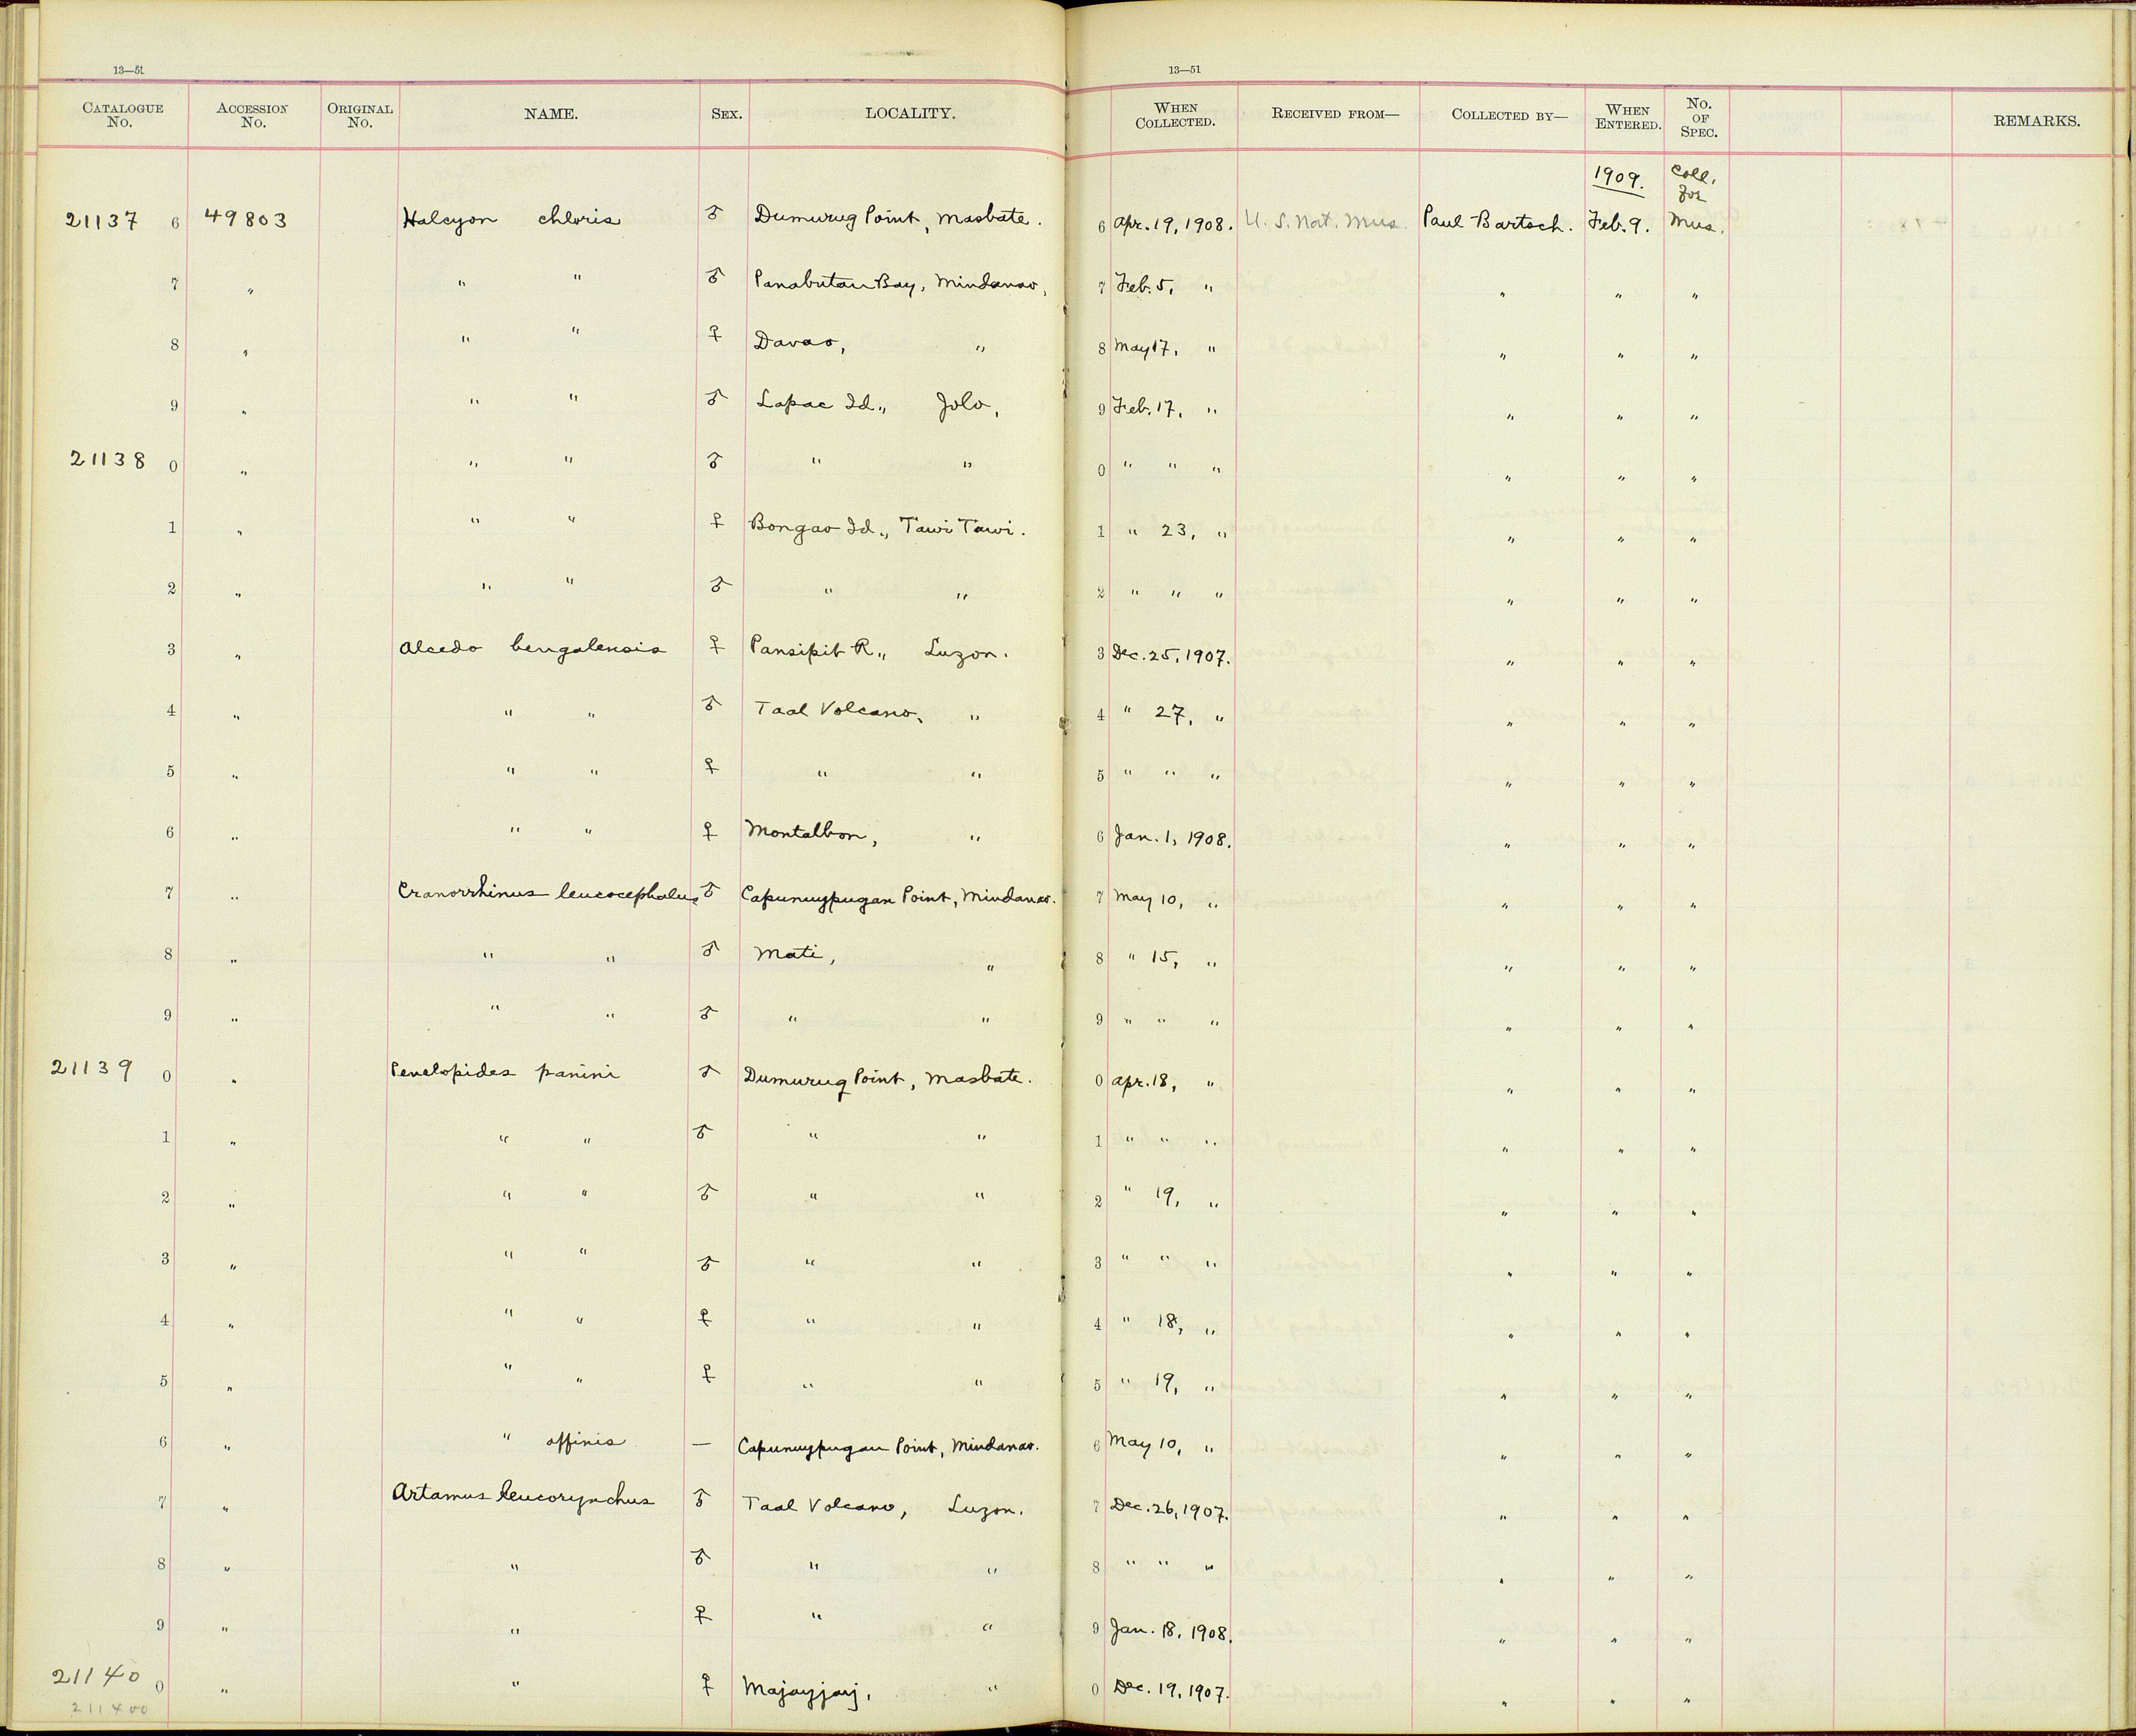 13—51 13—51
CATALOGUE No. ACCESSION No. ORIGINAL No. NAME. SEX. LOCALITY. WHEN COLLECTED. RECEIVED FROM— COLLECTED BY— WHEN ENTERED. No. OF SPEC. REMARKS.
1909. Coll. for
21137 6 49803 Halcyon chloris ♂ Dumurug Point, Masbate. 6 Apr. 19, 1908. U. S. Nat. Mus. Paul Bartsch. Feb. 9. Mus.
7 " " " ♂ Panabutan Bay, Mindanao, 7 Feb. 5, " " " "
8 " " " ♀ Davao, " 8 May 17, " " " "
9 " " " ♂ Lapac Id., Jolo, 9 Feb. 17, " " " "
21138 0 " " " ♂ " " 0 " " " " " "
1 " " " ♀ Bongao Id., Tawi Tawi. 1 " 23, " " " "
2 " " " ♂ " " 2 " " " " " "
3 " Alcedo bengalensis ♀ Pansipit R., Luzon. 3 Dec. 25, 1907. " " "
4 " " " ♂ Taal Volcano, " 4 " 27, " " " "
5 " " " ♀ " " 5 " " " " " "
6 " " " ♀ Montalbon, " 6 Jan. 1, 1908. " " "
7 " Cranorrhinus leucocephalus ♂ Capunuypugan Point, Mindanao. 7 May 10, " " " "
8 " " " ♂ Mati, " 8 " 15, " " " "
9 " " " ♂ " " 9 " " " " " "
21139 0 " Penelopides panini ♂ Dumurug Point, Masbate. 0 Apr. 18, " " " "
1 " " " ♂ " " 1 " " " " " "
2 " " " ♂ " " 2 " 19, " " " "
3 " " " ♂ " " 3 " " " " " "
4 " " " ♀ " " 4 " 18, " " " "
5 " " " ♀ " " 5 " 19, " " " "
6 " " affinis — Capunuypugan Point, Mindanao. 6 May 10, " " " "
7 " Artamus leucorynchus ♂ Taal Volcano, Luzon. 7 Dec. 26, 1907. " " "
8 " " ♂ " " 8 " " " " " "
9 " " ♀ " " 9 Jan. 18, 1908. " " "
21140 0 " " ♀ Majayjay, " 0 Dec. 19, 1907. " " "
211400